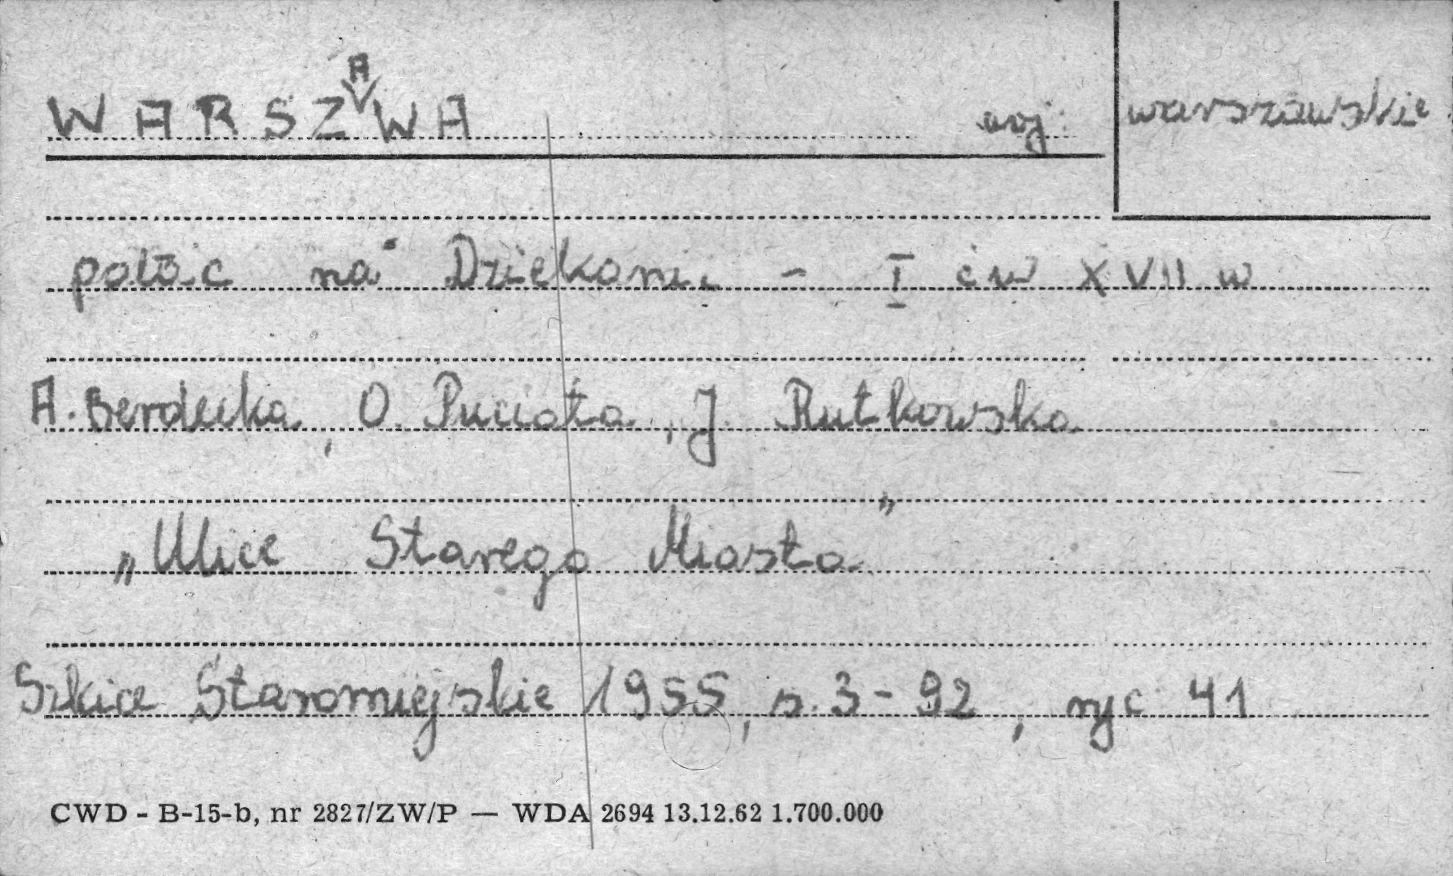 WARSZAWA woj. warszawskie
pałac na Dziekanii - I ćw XVII w
A. Berdecka, O. Puciata, J. Rutkowska
„Ulice Starego Miasta"
Szkice Staromiejskie 1955, s. 3-92, ryc 41
CWD - B-15-b, nr 2827/ZW/P — WDA 2694 13.12.62 1.700.000